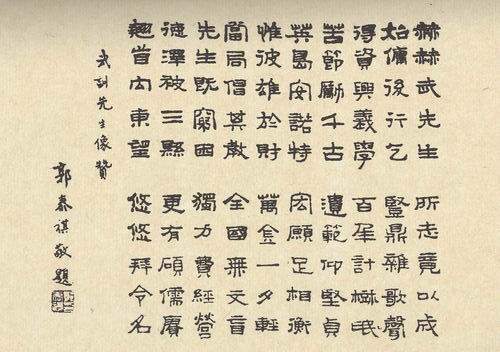 赫赫武先生 所志竟以成
始傭後行乞 豎鼎雜歌聲
得資興義學 百年計樹氓
苦節勵千古 遺範仰堅貞
英島安諾特 宏願足相衡
惟彼雄於財 萬金一夕輕
當局倡其教 全國無文盲
先生既窮困 獨力費經營
德澤被三縣 更有碩儒賡
翹首向東望 悠悠拜令名
武訓先生像贊
郭泰祺敬題